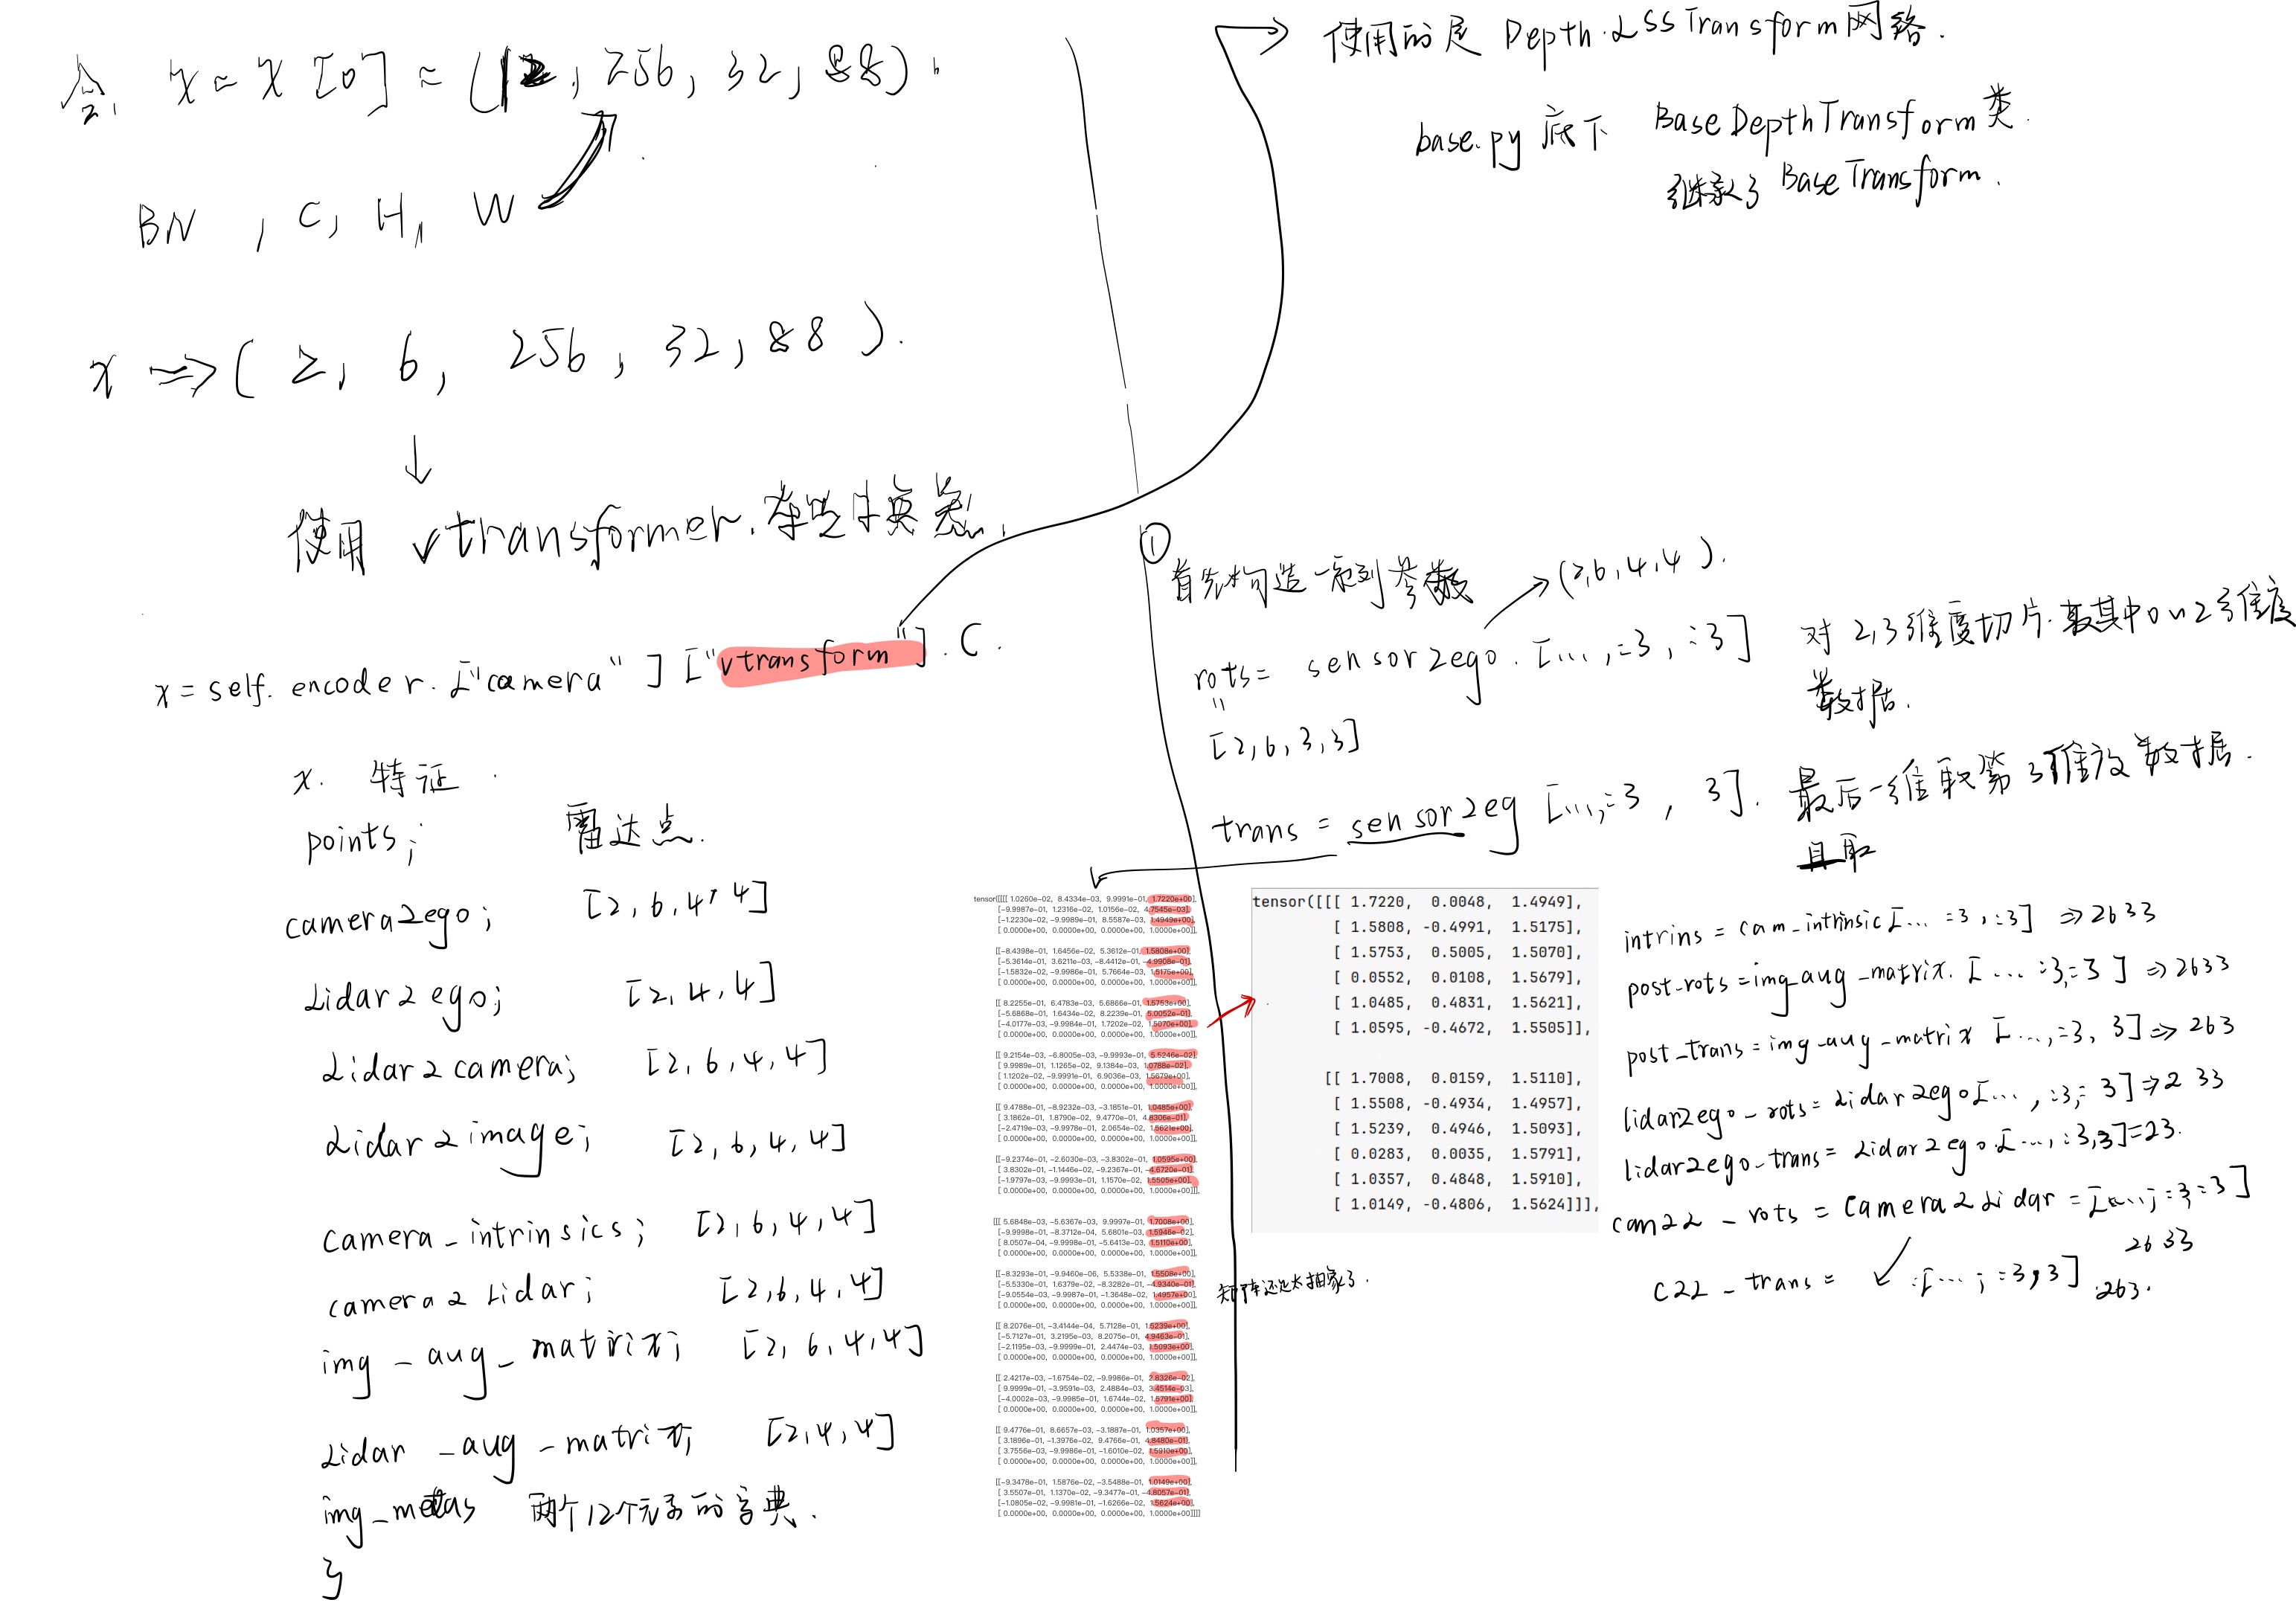 令 x = x[0] = (12, 256, 32, 88).
BN , C, H, W
x => ( 2, 6, 256, 32, 88 ).
使用 vtransformer.
x = self. encoder. ["camera"] ["vtransform"]. (
x. 特征.
points; 雷达点.
camera2ego; [2, 6, 4, 4]
Lidar2ego; [2, 4, 4]
Lidar2camera; [2, 6, 4, 4]
Lidar2image; [2, 6, 4, 4]
camera_intrinsics; [2, 6, 4, 4]
camera2Lidar; [2, 6, 4, 4]
img_aug_matrix; [2, 6, 4, 4]
Lidar_aug_matrix; [2, 4, 4]
img_metas 两个12个元素的字典.
}
使用的是 Depth.LSSTransform网络.
base.py 底下 BaseDepthTransform类.
继承了 BaseTransform.
① 首先构造一系列参数
(2, 6, 4, 4).
rots = sensor2ego. [..., :3, :3] 对2,3维度切片.取其中0~2维度
数据.
[2, 6, 3, 3]
trans = sensor2eg [..., :3, 3]. 最后一维取第3维度数据.
且取
tensor([[[[ 1.0260e-02, 8.4334e-03, 9.9991e-01, 1.7220e+00],
[-9.9987e-01, 1.2316e-02, 1.0156e-02, 4.7545e-03],
[-1.2230e-02, -9.9989e-01, 8.5587e-03, 1.4949e+00],
[ 0.0000e+00, 0.0000e+00, 0.0000e+00, 1.0000e+00]],
[[-8.4398e-01, 1.6456e-02, 5.3612e-01, 1.5808e+00],
[-5.3614e-01, 3.6211e-03, -8.4412e-01, -4.9908e-01],
[-1.5832e-02, -9.9986e-01, 5.7664e-03, 1.5175e+00],
[ 0.0000e+00, 0.0000e+00, 0.0000e+00, 1.0000e+00]],
[[ 8.2255e-01, 6.4783e-03, 5.6866e-01, 1.5753e+00],
[-5.6868e-01, 1.6434e-02, 8.2239e-01, 5.0052e-01],
[-4.0177e-03, -9.9984e-01, 1.7202e-02, 1.5070e+00],
[ 0.0000e+00, 0.0000e+00, 0.0000e+00, 1.0000e+00]],
[[ 9.2154e-03, -6.8005e-03, -9.9993e-01, 5.5246e-02],
[ 9.9989e-01, 1.1265e-02, 9.1384e-03, 1.0788e-02],
[ 1.1202e-02, -9.9991e-01, 6.9036e-03, 1.5679e+00],
[ 0.0000e+00, 0.0000e+00, 0.0000e+00, 1.0000e+00]],
[[ 9.4788e-01, -8.9232e-03, -3.1851e-01, 1.0485e+00],
[ 3.1862e-01, 1.8790e-02, 9.4770e-01, 4.8306e-01],
[-2.4719e-03, -9.9978e-01, 2.0654e-02, 1.5621e+00],
[ 0.0000e+00, 0.0000e+00, 0.0000e+00, 1.0000e+00]],
[[-9.2374e-01, -2.6030e-03, -3.8302e-01, 1.0595e+00],
[ 3.8302e-01, -1.1446e-02, -9.2367e-01, -4.6720e-01],
[-1.9797e-03, -9.9993e-01, 1.1570e-02, 1.5505e+00],
[ 0.0000e+00, 0.0000e+00, 0.0000e+00, 1.0000e+00]]],
[[[ 5.6848e-03, -5.6367e-03, 9.9997e-01, 1.7008e+00],
[-9.9998e-01, -8.3712e-04, 5.6801e-03, 1.5946e-02],
[ 8.0507e-04, -9.9998e-01, -5.6413e-03, 1.5110e+00],
[ 0.0000e+00, 0.0000e+00, 0.0000e+00, 1.0000e+00]],
[[-8.3293e-01, -9.9460e-06, 5.5338e-01, 1.5508e+00],
[-5.5330e-01, 1.6379e-02, -8.3282e-01, -4.9340e-01],
[-9.0554e-03, -9.9987e-01, -1.3648e-02, 1.4957e+00],
[ 0.0000e+00, 0.0000e+00, 0.0000e+00, 1.0000e+00]],
[[ 8.2076e-01, -3.4144e-04, 5.7128e-01, 1.5239e+00],
[-5.7127e-01, 3.2195e-03, 8.2075e-01, 4.9463e-01],
[-2.1195e-03, -9.9999e-01, 2.4474e-03, 1.5093e+00],
[ 0.0000e+00, 0.0000e+00, 0.0000e+00, 1.0000e+00]],
[[ 2.4217e-03, -1.6754e-02, -9.9986e-01, 2.8326e-02],
[ 9.9999e-01, -3.9591e-03, 2.4884e-03, 3.4514e-03],
[-4.0002e-03, -9.9985e-01, 1.6744e-02, 1.5791e+00],
[ 0.0000e+00, 0.0000e+00, 0.0000e+00, 1.0000e+00]],
[[ 9.4776e-01, 8.6657e-03, -3.1887e-01, 1.0357e+00],
[ 3.1896e-01, -1.3976e-02, 9.4766e-01, 4.8480e-01],
[ 3.7556e-03, -9.9986e-01, -1.6010e-02, 1.5910e+00],
[ 0.0000e+00, 0.0000e+00, 0.0000e+00, 1.0000e+00]],
[[-9.3478e-01, 1.5876e-02, -3.5488e-01, 1.0149e+00],
[ 3.5507e-01, 1.1370e-02, -9.3477e-01, -4.8057e-01],
[-1.0805e-02, -9.9981e-01, -1.6266e-02, 1.5624e+00],
[ 0.0000e+00, 0.0000e+00, 0.0000e+00, 1.0000e+00]]]]
tensor([[[ 1.7220, 0.0048, 1.4949],
[ 1.5808, -0.4991, 1.5175],
[ 1.5753, 0.5005, 1.5070],
[ 0.0552, 0.0108, 1.5679],
[ 1.0485, 0.4831, 1.5621],
[ 1.0595, -0.4672, 1.5505]],
[[ 1.7008, 0.0159, 1.5110],
[ 1.5508, -0.4934, 1.4957],
[ 1.5239, 0.4946, 1.5093],
[ 0.0283, 0.0035, 1.5791],
[ 1.0357, 0.4848, 1.5910],
[ 1.0149, -0.4806, 1.5624]]],
矩阵还是太抽象了.
intrins = cam_intrinsic[... :3, :3] => 2633
post_rots = img_aug_matrix. [... :3, :3] => 2633
post_trans = img_aug_matrix [..., :3, 3] => 263
lidar2ego_rots = Lidar2ego[..., :3, :3] => 233
lidar2ego_trans = Lidar2ego.[..., :3, 3] = 23.
cam2L_rots = Camera2Lidar = [..., :3, :3]
2633
C2L_trans = [..., :3, 3] .263.